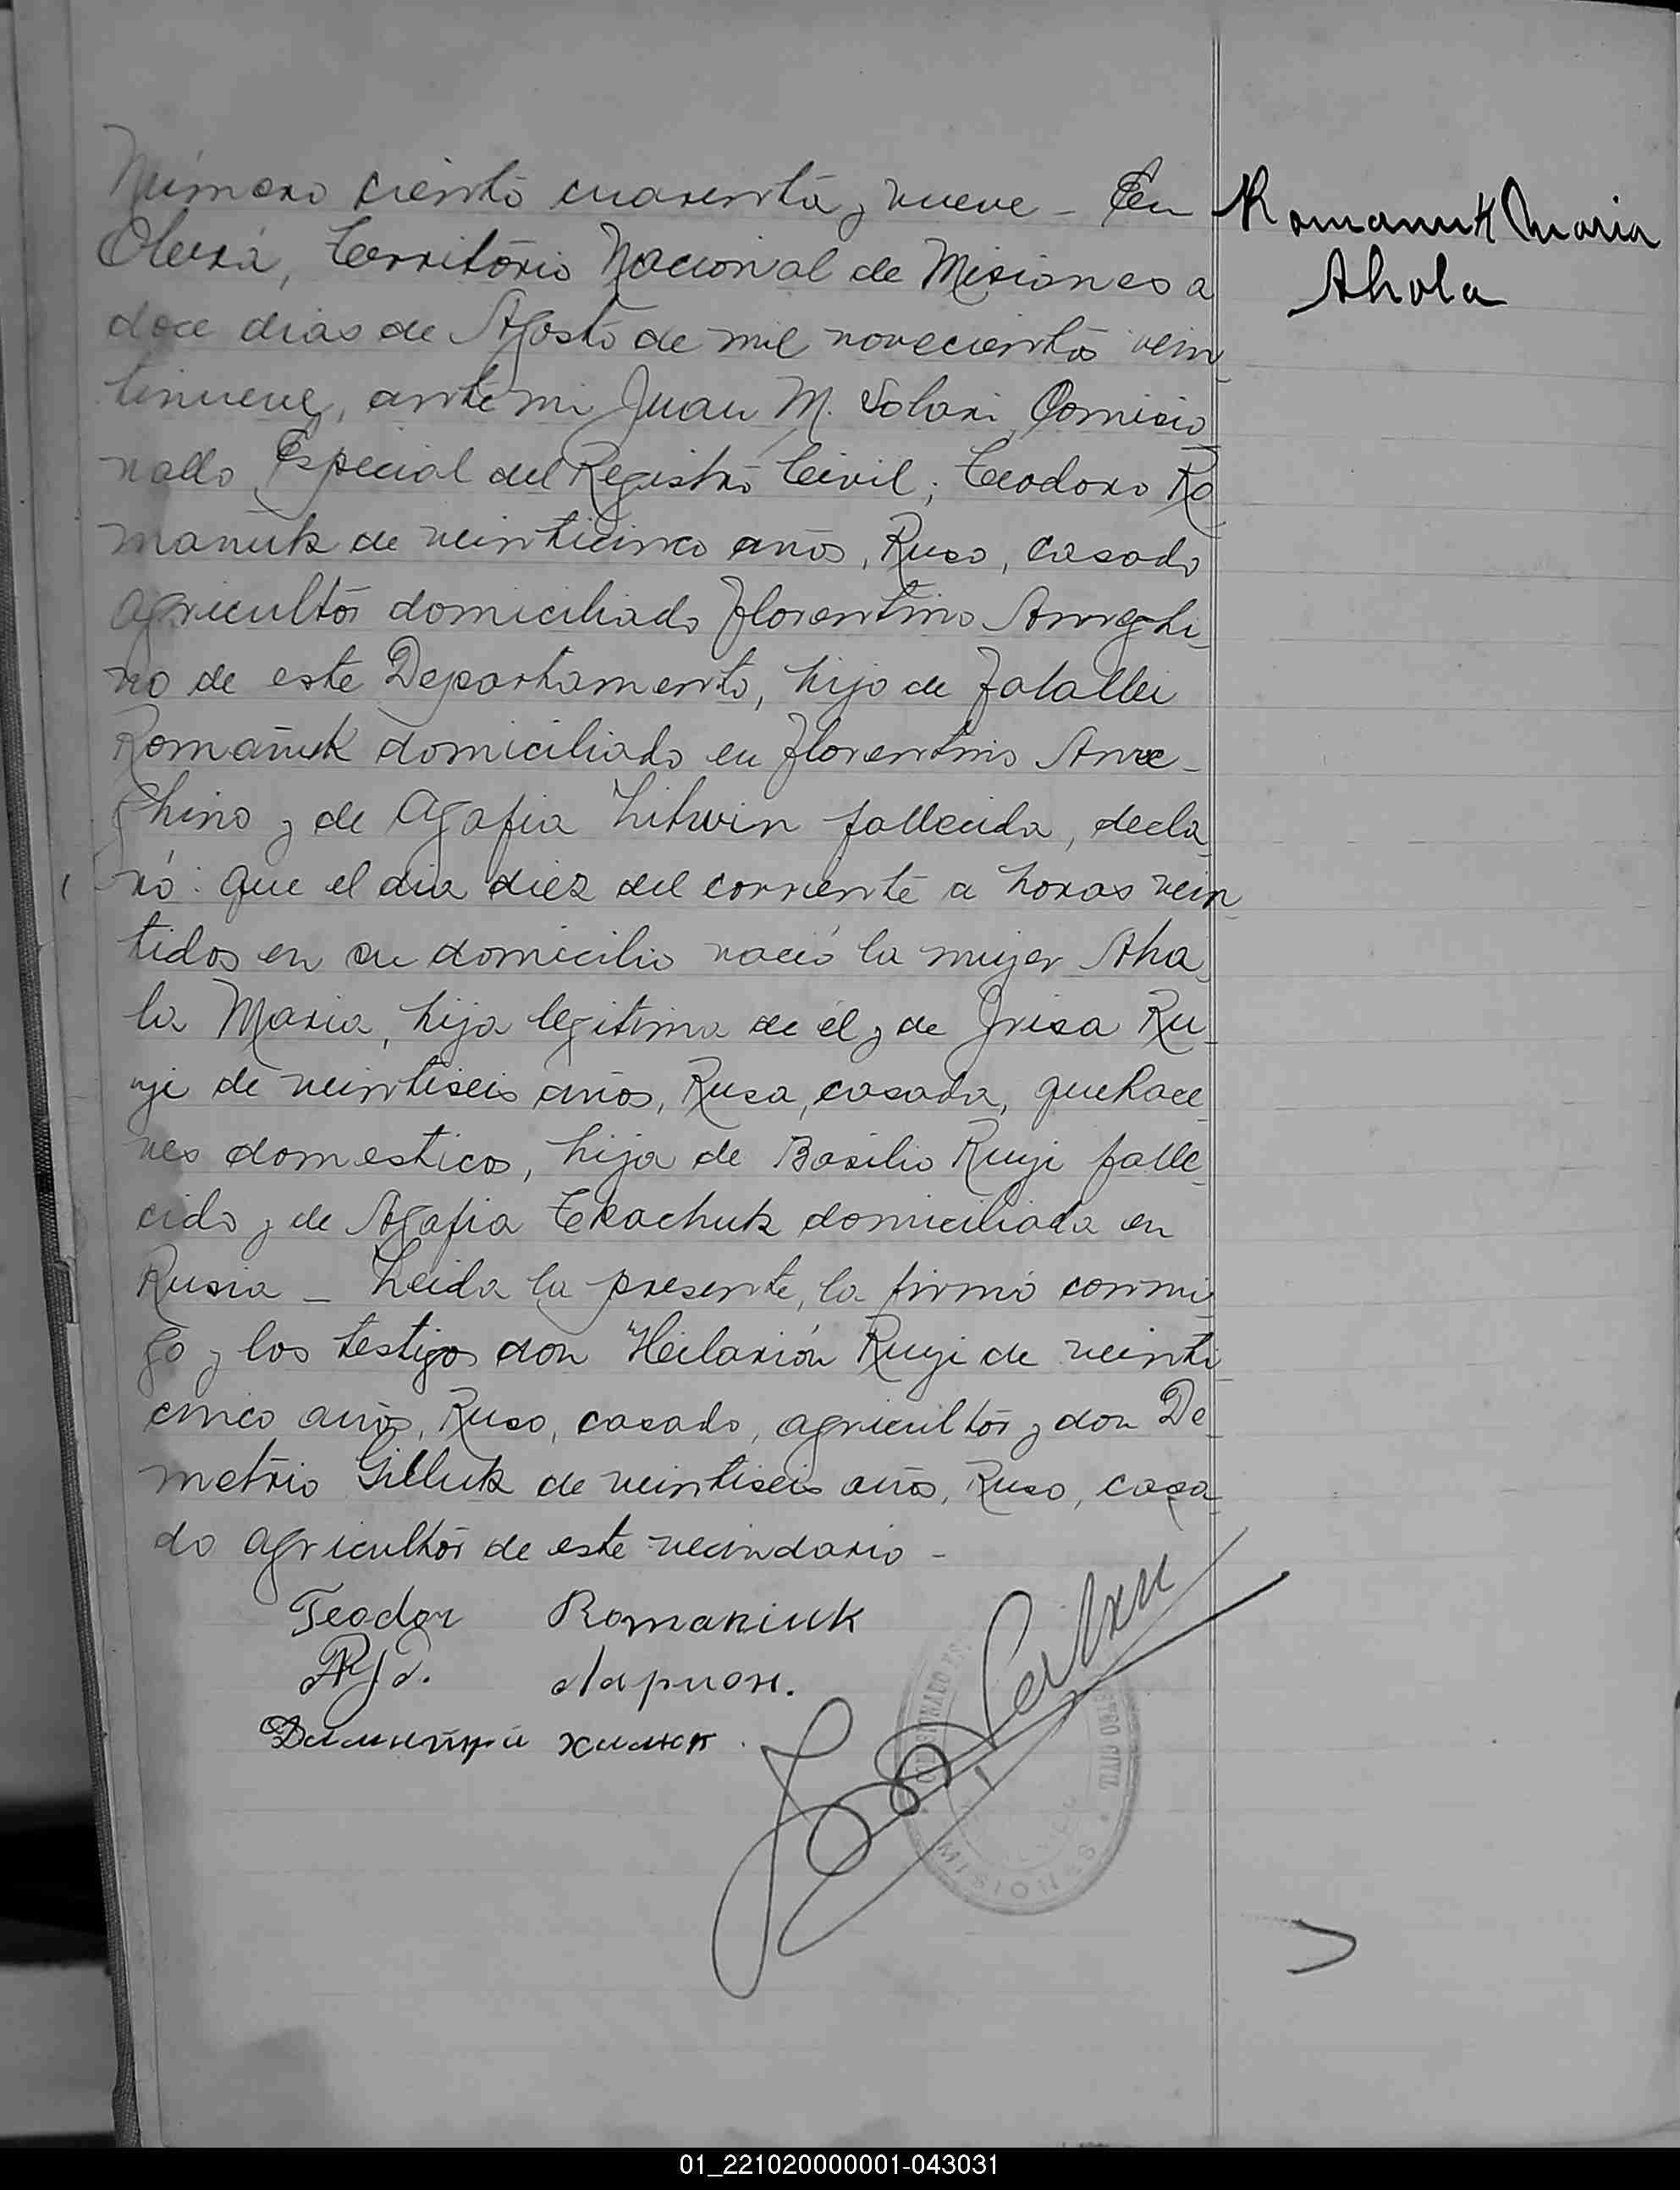 Número ciento cuarenta y nueve - En
Oberá, Territorio Nacional de Misiones a
doce dias de Agosto de mil novecientos vein
tinueve, ante mi Juan M. Solari Comisio
nado Especial del Registro Civil; Teodoro Ro
manuk de veinticinco años, Ruso, casado
agricultor domiciliado Florentino Ameghi
no de este Departamento, hijo de Falallei
Romañuk domiciliado en Florentino Ame-
ghino y de Agafia Litwin fallecida, decla
ró: que el dia diez del corriente a horas vein
tidos en su domicilio nació la mujer Aha
la Maria, hija legitima de él y de Irisa Ru
yi de veintiseis años, Rusa, casada, quehace
res domesticos, hija de Basilio Ruyi falle
cido y de Agafia Tkachuk domiciliada en
Rusia - Leida la presente, la firmó conmi
go y los testigos don Heilarión Ruyi de veinti
cinco años, Ruso, casado, agricultor y don De
metrio Gilluk de veintiseis años, Ruso, casa
do agricultor de este vecindario -
Teodor Romaniuk
Ларион.
Димитри хилюк.
COMISIONADO ES
REGISTRO CIVIL
MISIONES
Romanuk Maria
Ahola
01_221020000001-043031